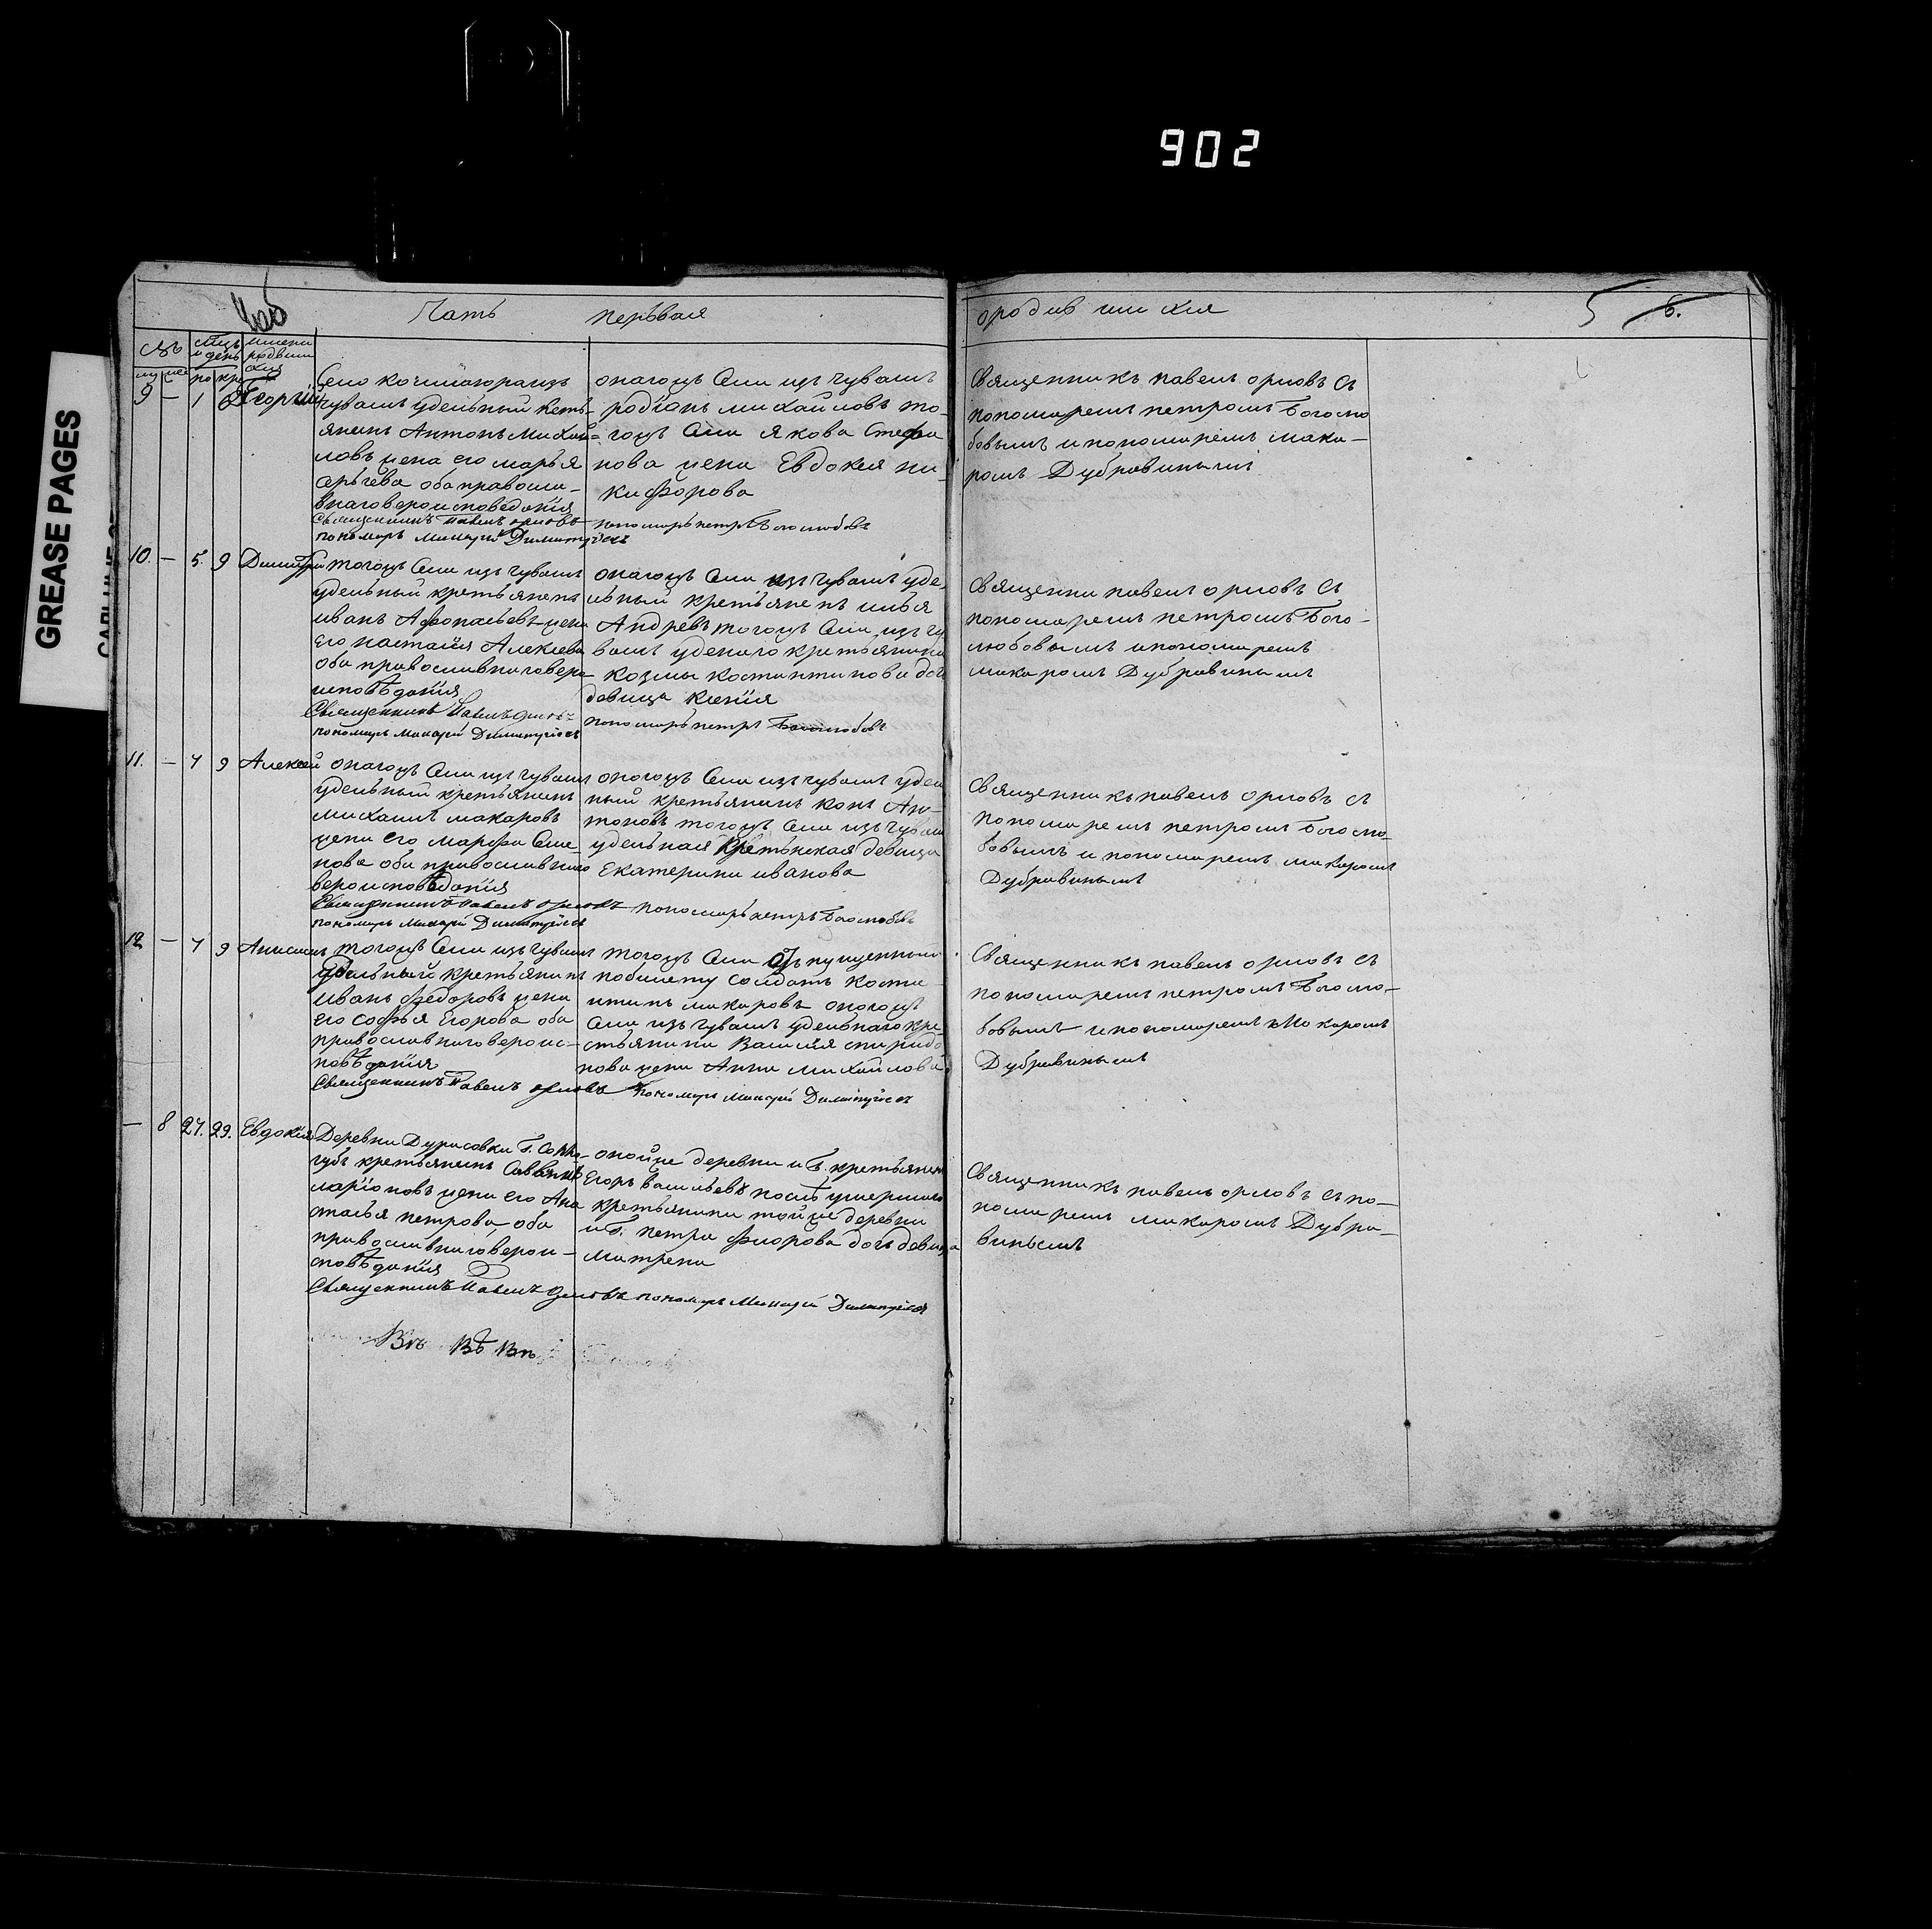 902
GREASE PAGES
Часть первая
ородившихся
5 6.
счъ
мцъ и день
имена родвши хся
му же ро кр
9 — 1 Георгий
Село кочшиюранзъ
чувашъ удельный кеть-
янинъ Антонъ Михай-
ловъ жена его марья
оба правосла-
внаговероисповедания
Священникъ Павелъ орловъ
пономарь Макарий Димитриевъ
оногожъ Села изъ чувашъ
родiонъ михайловъ то-
гожъ Села якова Стефа
нова жена Евдокея ни-
кифорова
пономарь петръ Боголюбовъ
Священникъ павелъ орловъ съ
пономаремъ петромъ Боголю
бовымъ и пономаремъ мака-
ромъ Дубравинымъ
10. — 5. 9 Димитрий
тогожъ Села изъ чувашъ
удельный кретьянинъ
иванъ Афонасьевъ жена
его настасия Алексеева
оба православнаговеро
исповѣдания
Священникъ Павелъ орловъ
пономарь Макарий Димитриевъ
оногожъ Села изъ чувашъ уде
льный кретьяненъ илья
Андревъ тогожъ Села изъ чу
вашъ уденаго кретьянина
козмы костантинова дочь
девица ксения
пономарь петръ Боголюбовъ
Священни павелъ орловъ съ
пономаремъ петромъ Бого-
любовымъ ипономаремъ
макаромъ Дубравинымъ
11. — 7 9 Алексей
оногожъ Села изъ чувашъ
удельный кретьянинъ
михаилъ макаровъ
жена его марфа Семе
нова оба православнаго
вероисповѣдания
Священникъ Павелъ орловъ
пономарь Макарий Димитриевъ
оногожъ Села изъ чувашъ удель
ный кретьянинъ конъ Ан-
тоновъ тогожъ Села изъ чуваш
удельная кретьнская девица
Екатерина иванова
пономарь петръ Боголюбовъ
Священникъ павелъ орловъ съ
пономаремъ петромъ Боголю-
бовымъ и пономаремъ макаромъ
Дубравинымъ
12 — 7 9 Анисимъ
тогожъ Села изъ чувашъ
удельный кретьянинъ
иванъ федоровъ жена
его софья Егорова оба
православнаговероис-
повѣдания
Священникъ Павелъ орловъ
тогожъ Села отъпущенный
побилету солдатъ коста
нтинъ макаровъ оногожъ
Села изъ чувашъ удельнаго кре-
стьянина Василия спиридо
нова жена Анна михайлова
пономарь Макарий Димитриевъ
Священникъ павелъ орловъ съ
пономаремъ петромъ Боголю-
бовымъ ипономаремъ Макаромъ
Дубравинымъ
— 8 27. 29. Евдокия
Деревни Дурасовки Г.
кретьянинъ
ларiоновъ жена его Ана
стасья петрова оба
православнаговерои-
сповѣдания
Священникъ Павелъ орловъ пономарь Макарий Димитриевъ
онойже деревни и Г. кретьянинъ
Егоръ васильевъ послѣ умершаго
кретьянина тойже деревни
и Г. петра флорова дочь девица
матрена
Священникъ павелъ орловъ съ по-
номаремъ макаромъ Дубра-
винымъ
Въ Въ Въ